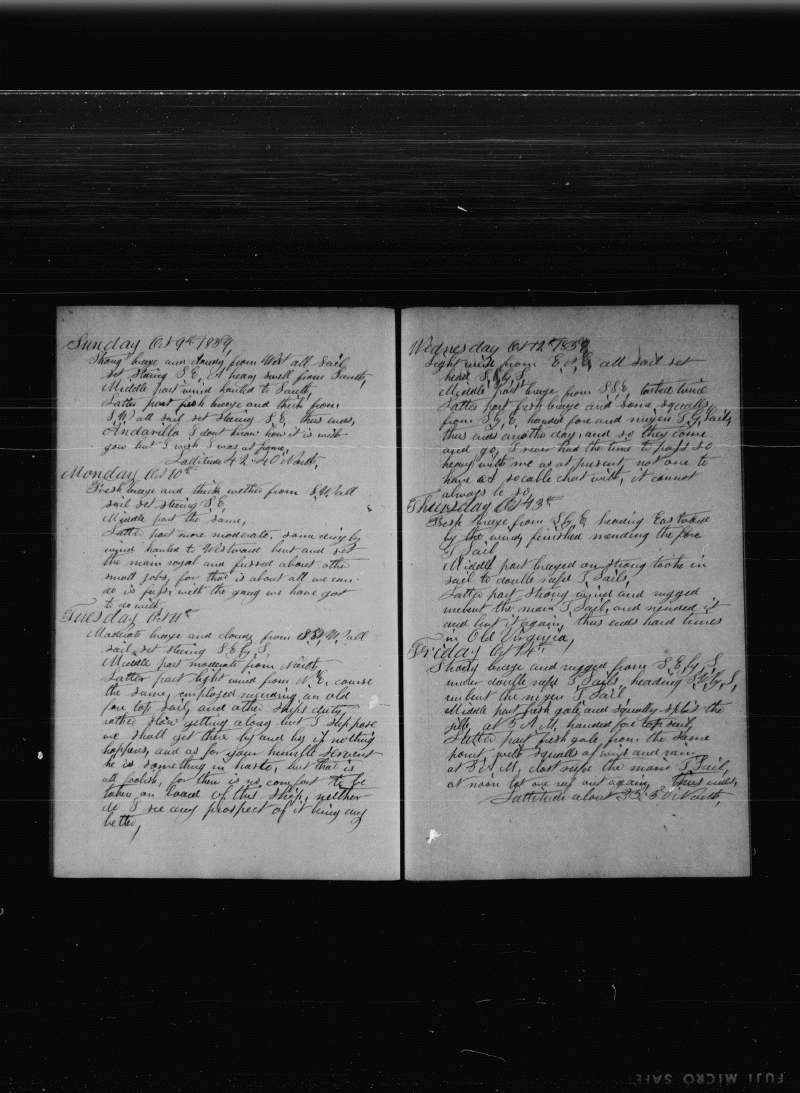 Sunday Oct 9th 1859
Strong breeze and cloudy from West all sail
set stearing S.E. A heavy swell from South,
Middle part wind hauled to South,
Latter part fresh breeze and thick from
S.W. all sail set stearing S.E, thus ends,
I dont know how it is with
you but I wish I was at home,
Lattitude 42..40 North,
Monday Oct 10th
Fresh breeze and thick wether from S.W. all
sail set steering S.E,
Middle part the same,
Latter part more moderate.
wind hauled to Westward bent and set
the main royal and fussed about othe
small jobs, for that is about all we can
do is fuss, with the gang we have got
to do with,
Tuesday Oct 11th
Moderate breeze and cloudy from W. all
sail set stearing S.E. by S.
Middle part moderate from North
Latter part light wind from N.E. course
the same, employed mending an old
fore top sail, and other ships duty,
rather slow getting along but I suppose
we shall get there by and by if nothing
happens, and as for your humble servent
he is something in haste, but that is
all foolish, for there is no comfort to be
taken on board of this ship, neither
do I see any prospect of it being any
better,
Wednesday Oct 12th 1859
Light wind from E all sail set
head
Middle part breeze from S.S.E, tacked twice
Latter part fresh breeze and some squally
from S, by E, handed fore and mizen T, G, Sails,
thus ends another day, and so they come
and go, I never had the time to pass so
heavy with me as at present not one to
have a socable chat with, it cannot
always be so,
Thursday Oct 13th
Fresh breeze from S by E heading East tacked
by the wind, finished mending the fore
T, Sail
Middle part breezed on strong tooke in
sail to double reefd T, Sails,
Latter part strong wind and rugged
unbent the main T, Sail, and mended it
and bent it again, thus ends hard times
in Old Virginia,
Friday Oct 14th
Strong breeze and rugged from S, E, by S,
under double reefd T, Sails, heading S.W. by S,
unbent the mizen T, Sail
Middle part fresh gale and squally split the
jibb, at 5 A.M, handed fore top sail,
Latter part fresh gale from the same
point, with squalls of wind and rain,
at A, M, clost reefd the main T, Sail,
at noon let one reef out again, thus ends,
Lattitude about 35..50 North,
FUJI MICRO SAFE